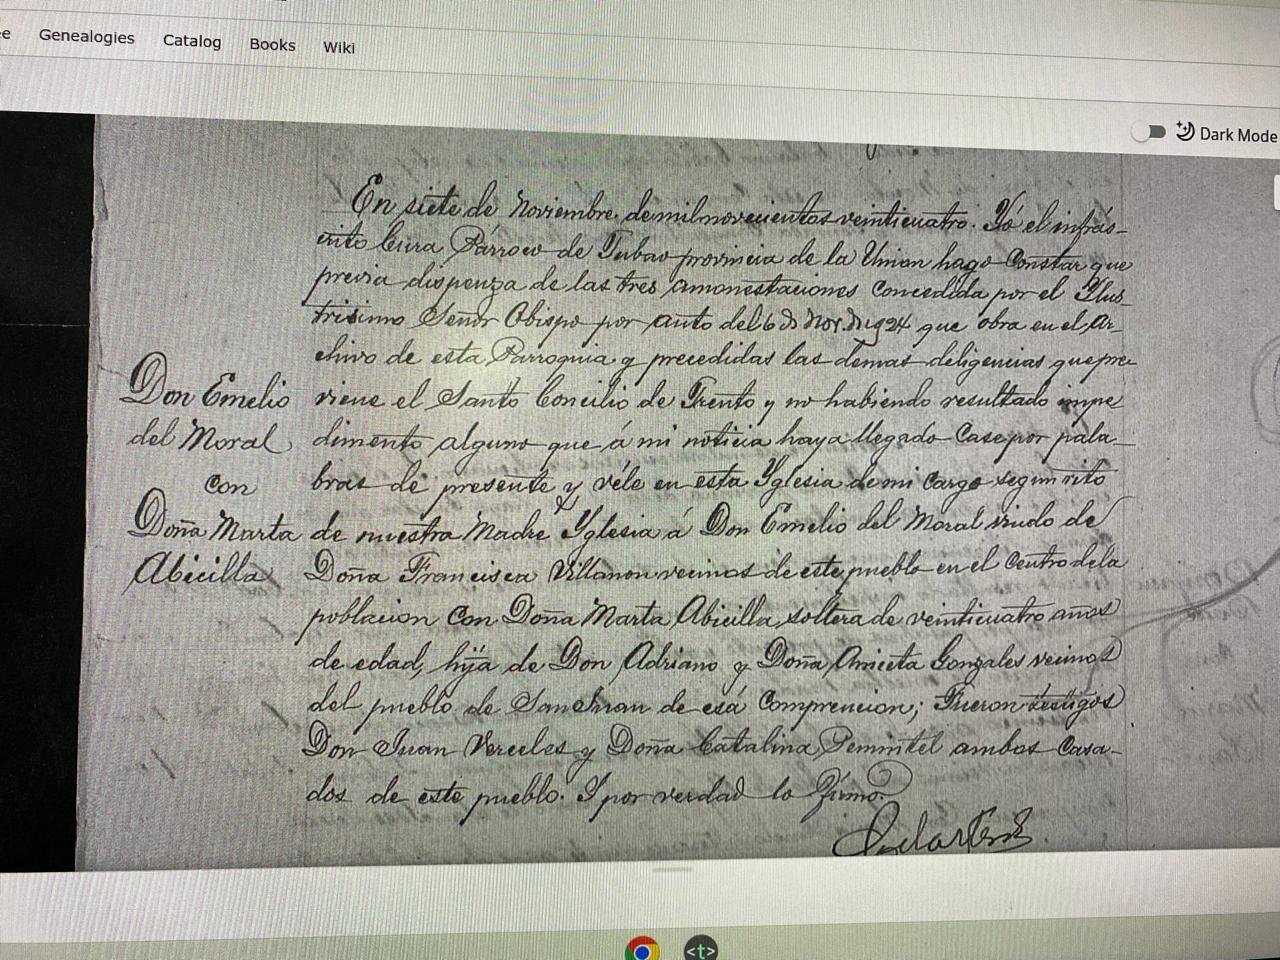 Genealogies Catalog Books Wiki
Dark Mode
En siete de Noviembre de mil novecientos veinticuatro. Yó el infrás-
crito Cura Párroco de Tubao provincia de la Union hago Constar que
previa dispenza de las tres amonestaciones Concedida por el Ylus
trisimo Señor Obispo por auto del 6 d Nov. d 1924 que obra en el Ar-
chivo de esta Parroquia y precedidas las demas deligencias que pre
viene el Santo Concilio de Trento y no habiendo resultado impe
dimento alguno que á mi noticia haya llegado Case por pala-
bras de presente y véle en esta Yglesia de mi Cargo segun rito
de nuestra Madre Yglesia á Don Emelio del Moral viudo de
Doña Francisca Villanon vecinos de este pueblo en el Centro de la
poblacion Con Doña Marta Abicilla, soltera de veinticuatro años
de edad, hija de Don Adriano y Doña Aniceta Gonzales vecinos
del pueblo de San Juan de esa Comprencion; Fueron testigos
Don Juan Verceles y Doña Catalina Pemintel ambos Casa-
dos de este pueblo. Y por verdad lo firmo.
Don Emelio
del Moral
Con
Doña Marta
Abicilla